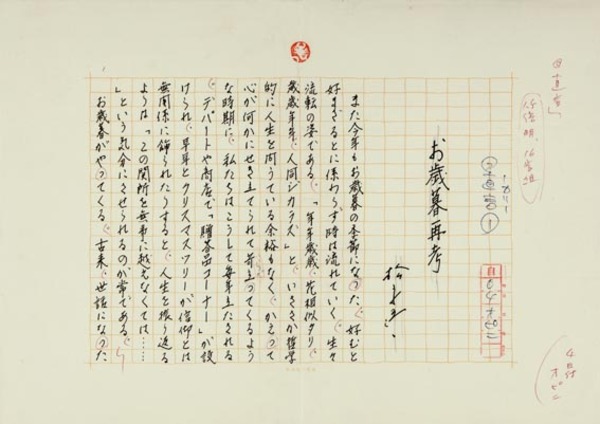 4日付
お歳暮再考
また今年もお歳暮の季節になった。好むと
好まざるとに係わらず時は流れていく。生々
流転の姿である。「年年歳歳、花相似タリ。
歳歳年年、人同ジカラズ」と、いささか哲学
的に人生を問うている余裕もなく、かえって
心が何かにせき立てられて苛立ってくるよう
な時期に、私たちはこうして毎年立たされる
。デパートや商店で「贈答品コーナー」が設
けられ、早早とクリスマスツリーが信仰とは
無関係に飾られたりすると、人生を振り返る
よりは「この関所を無事に越えなくては……
」という気分にさせられるのが常である。
お歳暮がやってくる。古来、世話になった